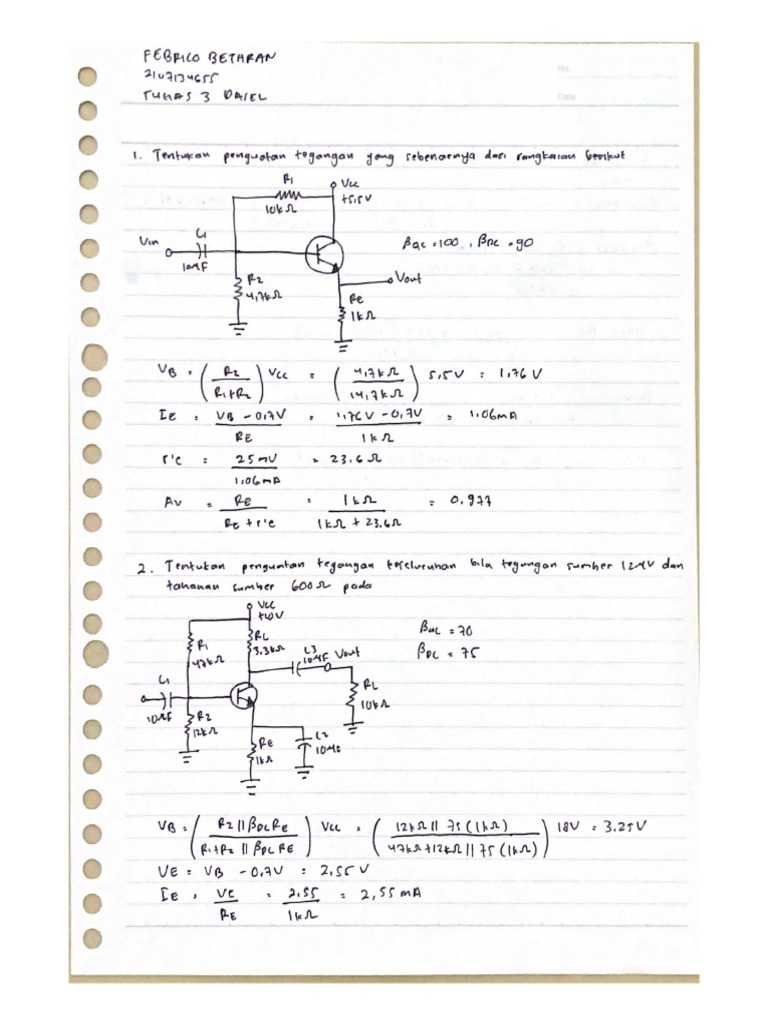 FEBRICO BETHRAN
2107134655
TUGAS 3 DASEL
No.
Date
1. Tentukan penguatan tegangan yang sebenarnya dari rangkaian berikut
R1
10kΩ
Vcc
+5,5V
Vin
C1
10MF
R2
4,7kΩ
Vout
RE
1kΩ
βac = 100 , βDC = 90
VB = (R2 / R1+R2) Vcc = (4,7kΩ / 14,7kΩ) 5,5V = 1,76V
IE = VB - 0,7V / RE = 1,76V - 0,7V / 1kΩ = 1,06mA
r'e = 25mV / 1,06mA = 23,6Ω
Av = RE / RE + r'e = 1kΩ / 1kΩ + 23,6Ω = 0,977
2. Tentukan penguatan tegangan keseluruhan bila tegangan sumber dan
tahanan sumber 600Ω pada
Vcc
R1
47kΩ
RC
3,3kΩ
C3
10MF
Vout
RL
10kΩ
C1
10MF
R2
12kΩ
RE
1kΩ
C2
βac = 70
βDC = 75
VB = (R2 || βDC RE / R1+R2 || βDC RE) Vcc = (12kΩ || 75 (1kΩ) / 47kΩ+12kΩ || 75 (1kΩ)) 18V = 3.25V
VE = VB - 0,7V = 2,55V
IE = VE / RE = 2,55 / 1kΩ = 2,55mA